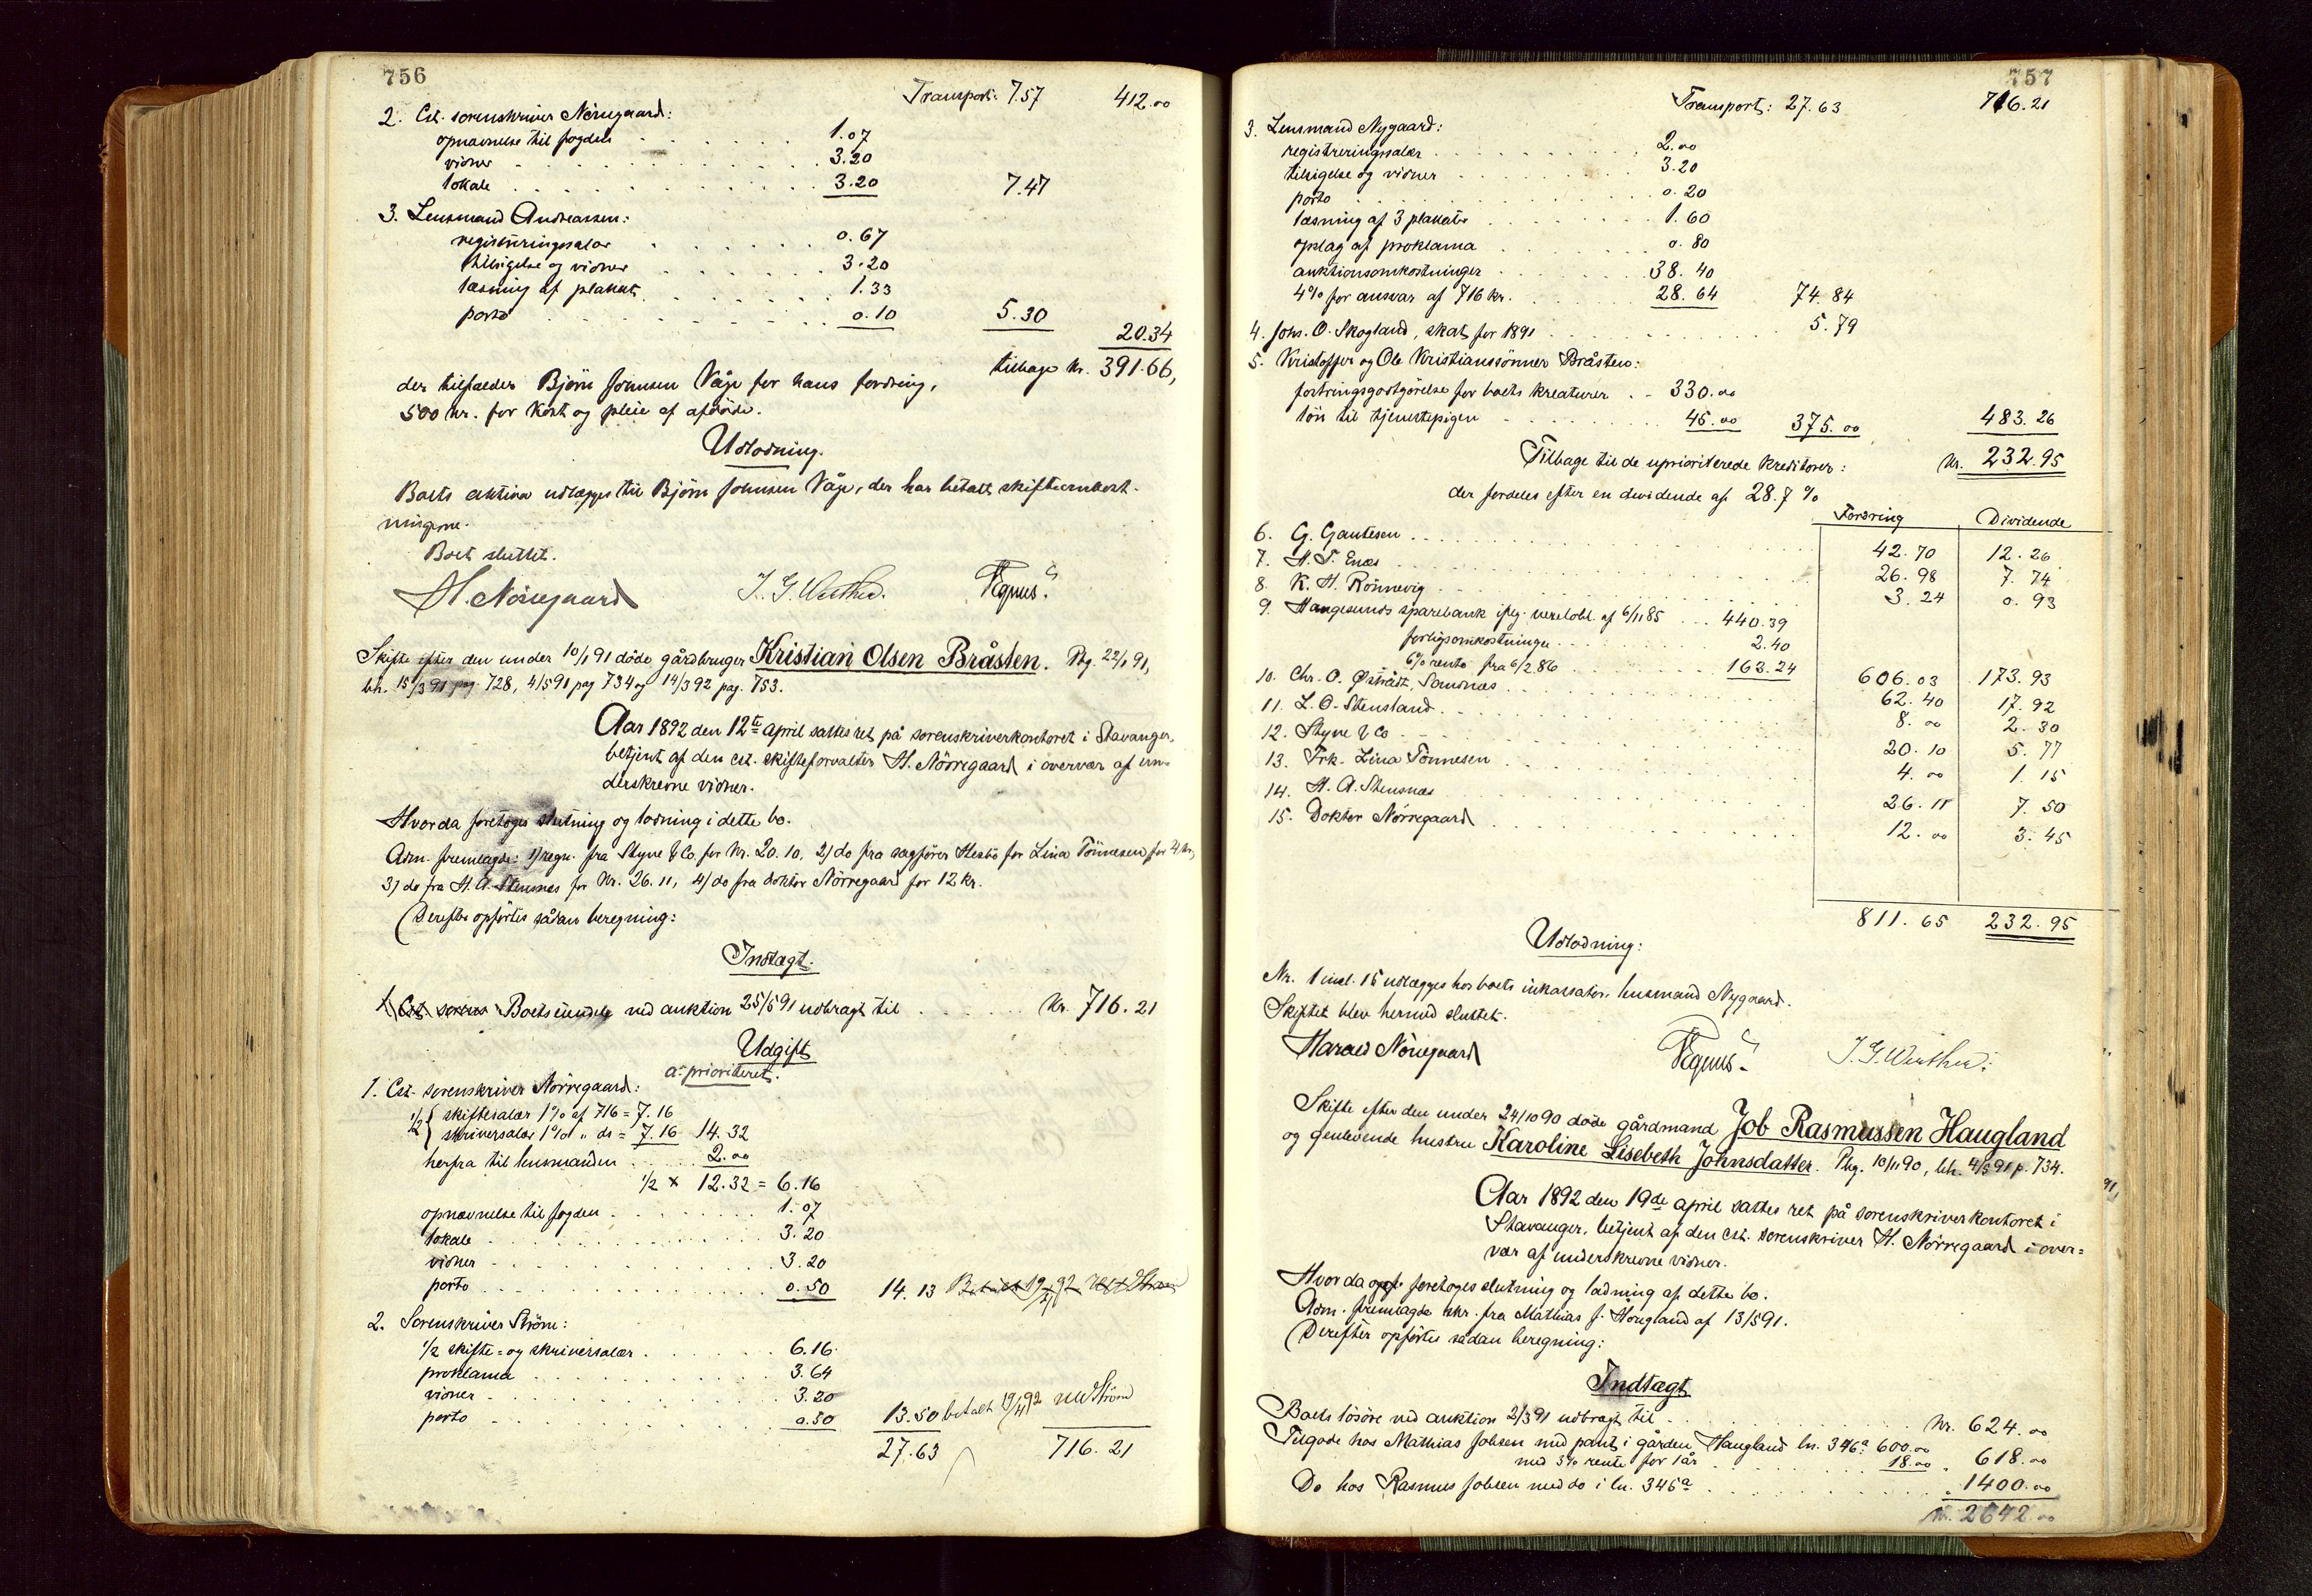 756
Transport: 7.57 412.00
2. Cst. sorenskriver Nørregaard:
opnævnelse til fogden 1.07
vidner 3.20
lokale 3.20 7.47
3. Lensmand Andreassen:
registreringssalær 0.67
tilsigelse og vidner 3.20
læsning af plakat 1.33
porto 0.10 5.30
20.34
tilbage kr. 391.66,
der tilfalder Bjørn Johnsen Våge for hans fordring,
500 kr. for kost og pleie af afdøde.
Udlodning.
Boets aktiva udlægges til Bjørn Johnsen Våge, der har betalt skifteomkost-
ningerne.
Boet sluttet.
H. Nørregaard J. G. Werther.
Skifte efter den under 10/1 91 døde gårdbruger Kristian Olsen Bråsten. Pbg. 22/1 91,
bh. 15/3 91 pag. 728, 4/5 91 pag 734 og 14/3 92 pag. 753.
Aar 1892 den 12te april sattes ret på sorenskriverkontoret i Stavanger,
betjent af den cst. skifteforvalter H. Nørregaard i overvær af un-
derskrevne vidner.
Hvorda foretoges slutning og lodning i dette bo.
Adm. fremlagde: 1) regn. fra Styve & Co. for kr. 20.10, 2) do fra sagfører Hesbø for Lina Tönnesen for 4 kr,
3) do fra H. A. Stensnæs for kr. 26.11, 4) do fra doktor Nørregaard for 12 kr.
Derefter opførtes sådan beregning:
Indtægt.
1) Cst. soren Boets eiendele ved auktion 25/5 91 udbragt til kr. 716.21
Udgift
a. prioriteret.
1. Cst. sorenskriver Nørregaard:
1/2 { skiftesalær 1% af 716 = 7.16
skriversalær 1% " do = 7.16 14.32
herfra til lensmanden 2.00
1/2 x 12.32 = 6.16
opnævnelse til fogden 1.07
lokale 3.20
vidner 3.20
porto 0.50 14.13
2. Sorenskriver Strøm:
1/2 skifte= og skriversalær 6.16
proklama 3.64
vidner 3.20
porto 0.50 13.50 betalt 19/4 92 Strøm
27.63 716.21
757
Transport: 27.63 716.21
3. Lensmand Nygaard:
registreringssalær 2.00
tilsigelse og vidner 3.20
porto 0.20
læsning af 3 plakater 1.60
opslag af proklama 0.80
auktionsomkostninger 38.40
4% for ansvar af 716 kr. 28.64 74.84
4. Johs. O. Skogland, skat for 1891 5.79
5. Kristoffer og Ole Kristianssønner Bråsten:
fostringsgodtgörelse for boets kreaturer 330.00
lön til tjenestepigen 45.00 375.00 483.26
Tilbage til de uprioriterede kreditorer: kr. 232.95
der fordeles efter en devidende af 28.7 %
Fordring Dividende
6. G. Gautesen 42.70 12.26
7. H. S. Enæs 26.98 7.74
8. K. H. Rönnevig 3.24 0.93
9. Haugesunds sparebank iflg. vexelobl. af 6/11 85 440.39
forligsomkostninger 2.40
6% rente fra 6/2 86 163.24 606.03 173.93
10. Chr. O. Østrådt, Sandnæs 62.40 17.92
11. L. O. Stensland 8.00 2.30
12. Styve & Co 20.10 5.77
13. Frk. Lina Tönnesen 4.00 1.15
14. H. A. Stensnæs 26.11 7.50
15. Doktor Nørregaard 12.00 3.45
811.65 232.95
Udlodning:
Nr. 1 incl. 15 udlægges hos boets inkassator, lensmand Nygaard.
Skiftet blev hermed sluttet.
Harald Nørregaard J. G. Werther.
Skifte efter den under 24/10 90 døde gårdmand Job Rasmussen Haugland
og genlevende hustru Karoline Lisebeth Johnsdatter. Pbg. 10/11 90, bh. 4/5 91 p. 734.
Aar 1892 den 19de april sattes ret på sorenskriverkontoret i
Stavanger, betjent af den cst. sorenskriver H. Nørregaard i over=
vær af underskrevne vidner.
Hvorda opf. foretoges slutning og lodning af dette bo.
Adm. fremlagde skr. fra Mathias J. Hougland af 13/5 91.
Derefter opførtes sådan beregning:
Indtægt
Boets løsøre ved auktion 2/3 91 udbragt til kr. 624.00
Tilgode hos Mathias Jobsen med pant i gården Haugland ln. 346a: 600.00
med 3% rente for 1 år 18.00 618.00
Do hos Rasmus Jobsen med do i ln. 345a 1400.00
kr. 2642.00